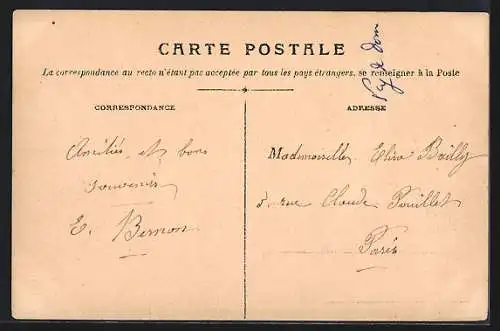 CARTE POSTALE
La correspondance au recto n'étant pas acceptée par tous les pays étrangers, se renseigner à la Poste
CORRESPONDANCE
Amitiés et bons
souvenirs
E. Bernon
ADRESSE
Mademoiselle Elisa Bailly
5 rue Claude Pouillet
Paris
Puy de Dôme